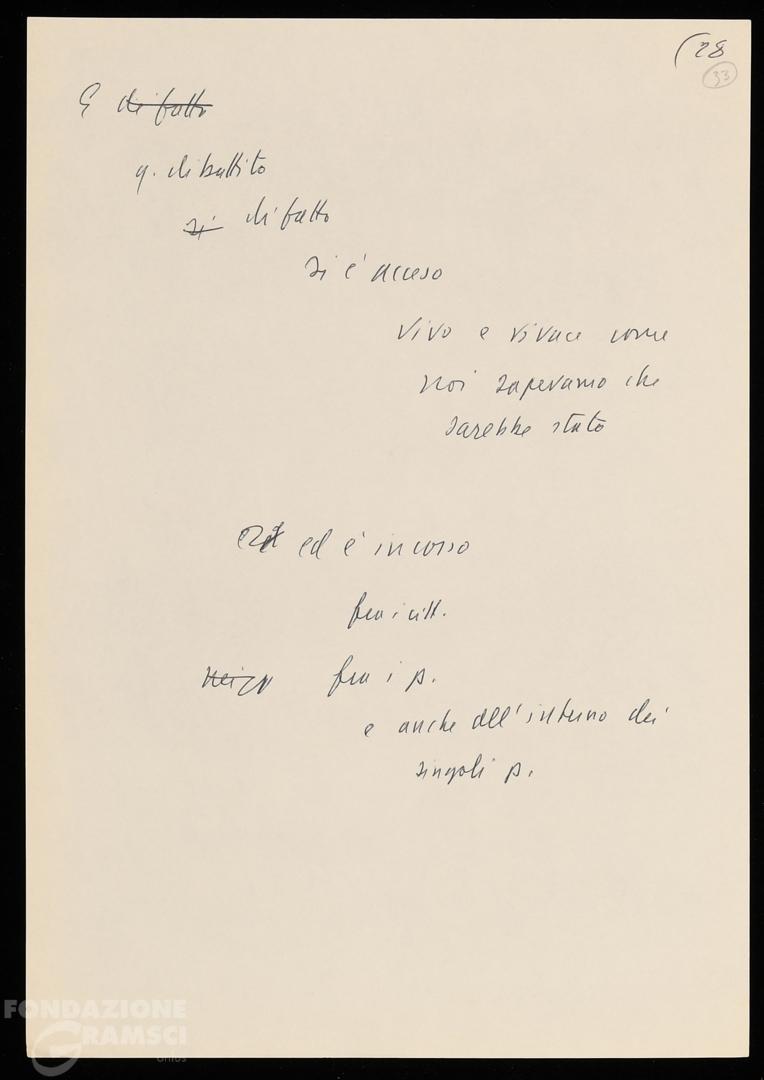 (28
33
E di fatto
q. dibattito
si di fatto
si è acceso
vivo e vivace come
noi sapevamo che
sarebbe stato
ed è in corso
fra i citt.
fra i p.
e anche all'interno dei
singoli p.
FONDAZIONE
GRAMSCI
onlus